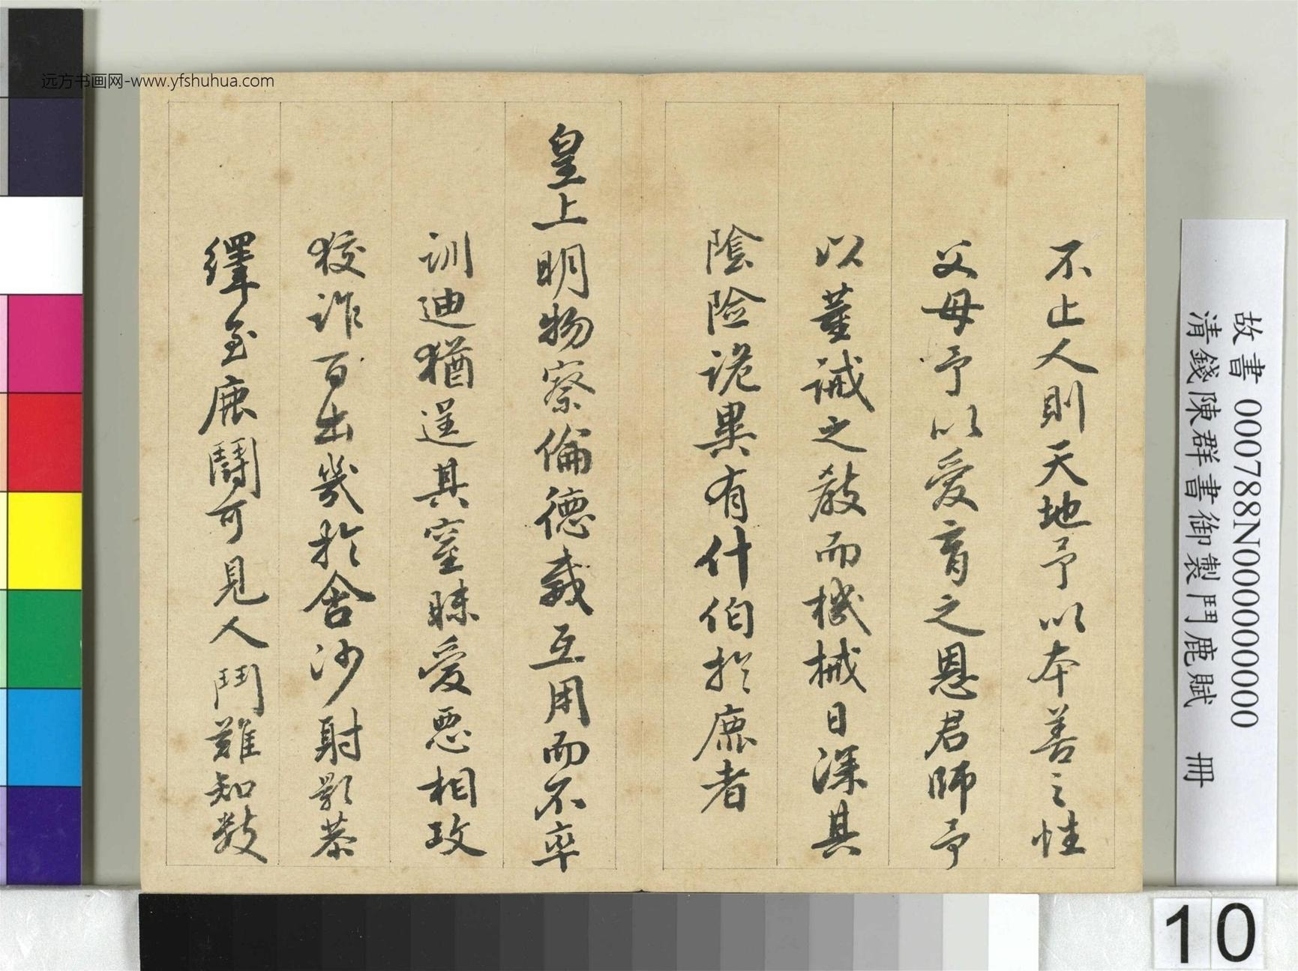 远方书画网-www.yfshuhua.com
不止人則天地予以本善之性
父母予以愛育之恩君師予
以董誡之教而機械日深其
陰險詭異有什伯於鹿者
皇上明物察倫德威互用而不率
訓迪猶逞其窒昧愛惡相攻
狡詐百出幾於含沙射影恭
繹至鹿鬪可見人鬥難知數
故書 000788N000000000
清錢陳群書御製鬥鹿賦 冊
10